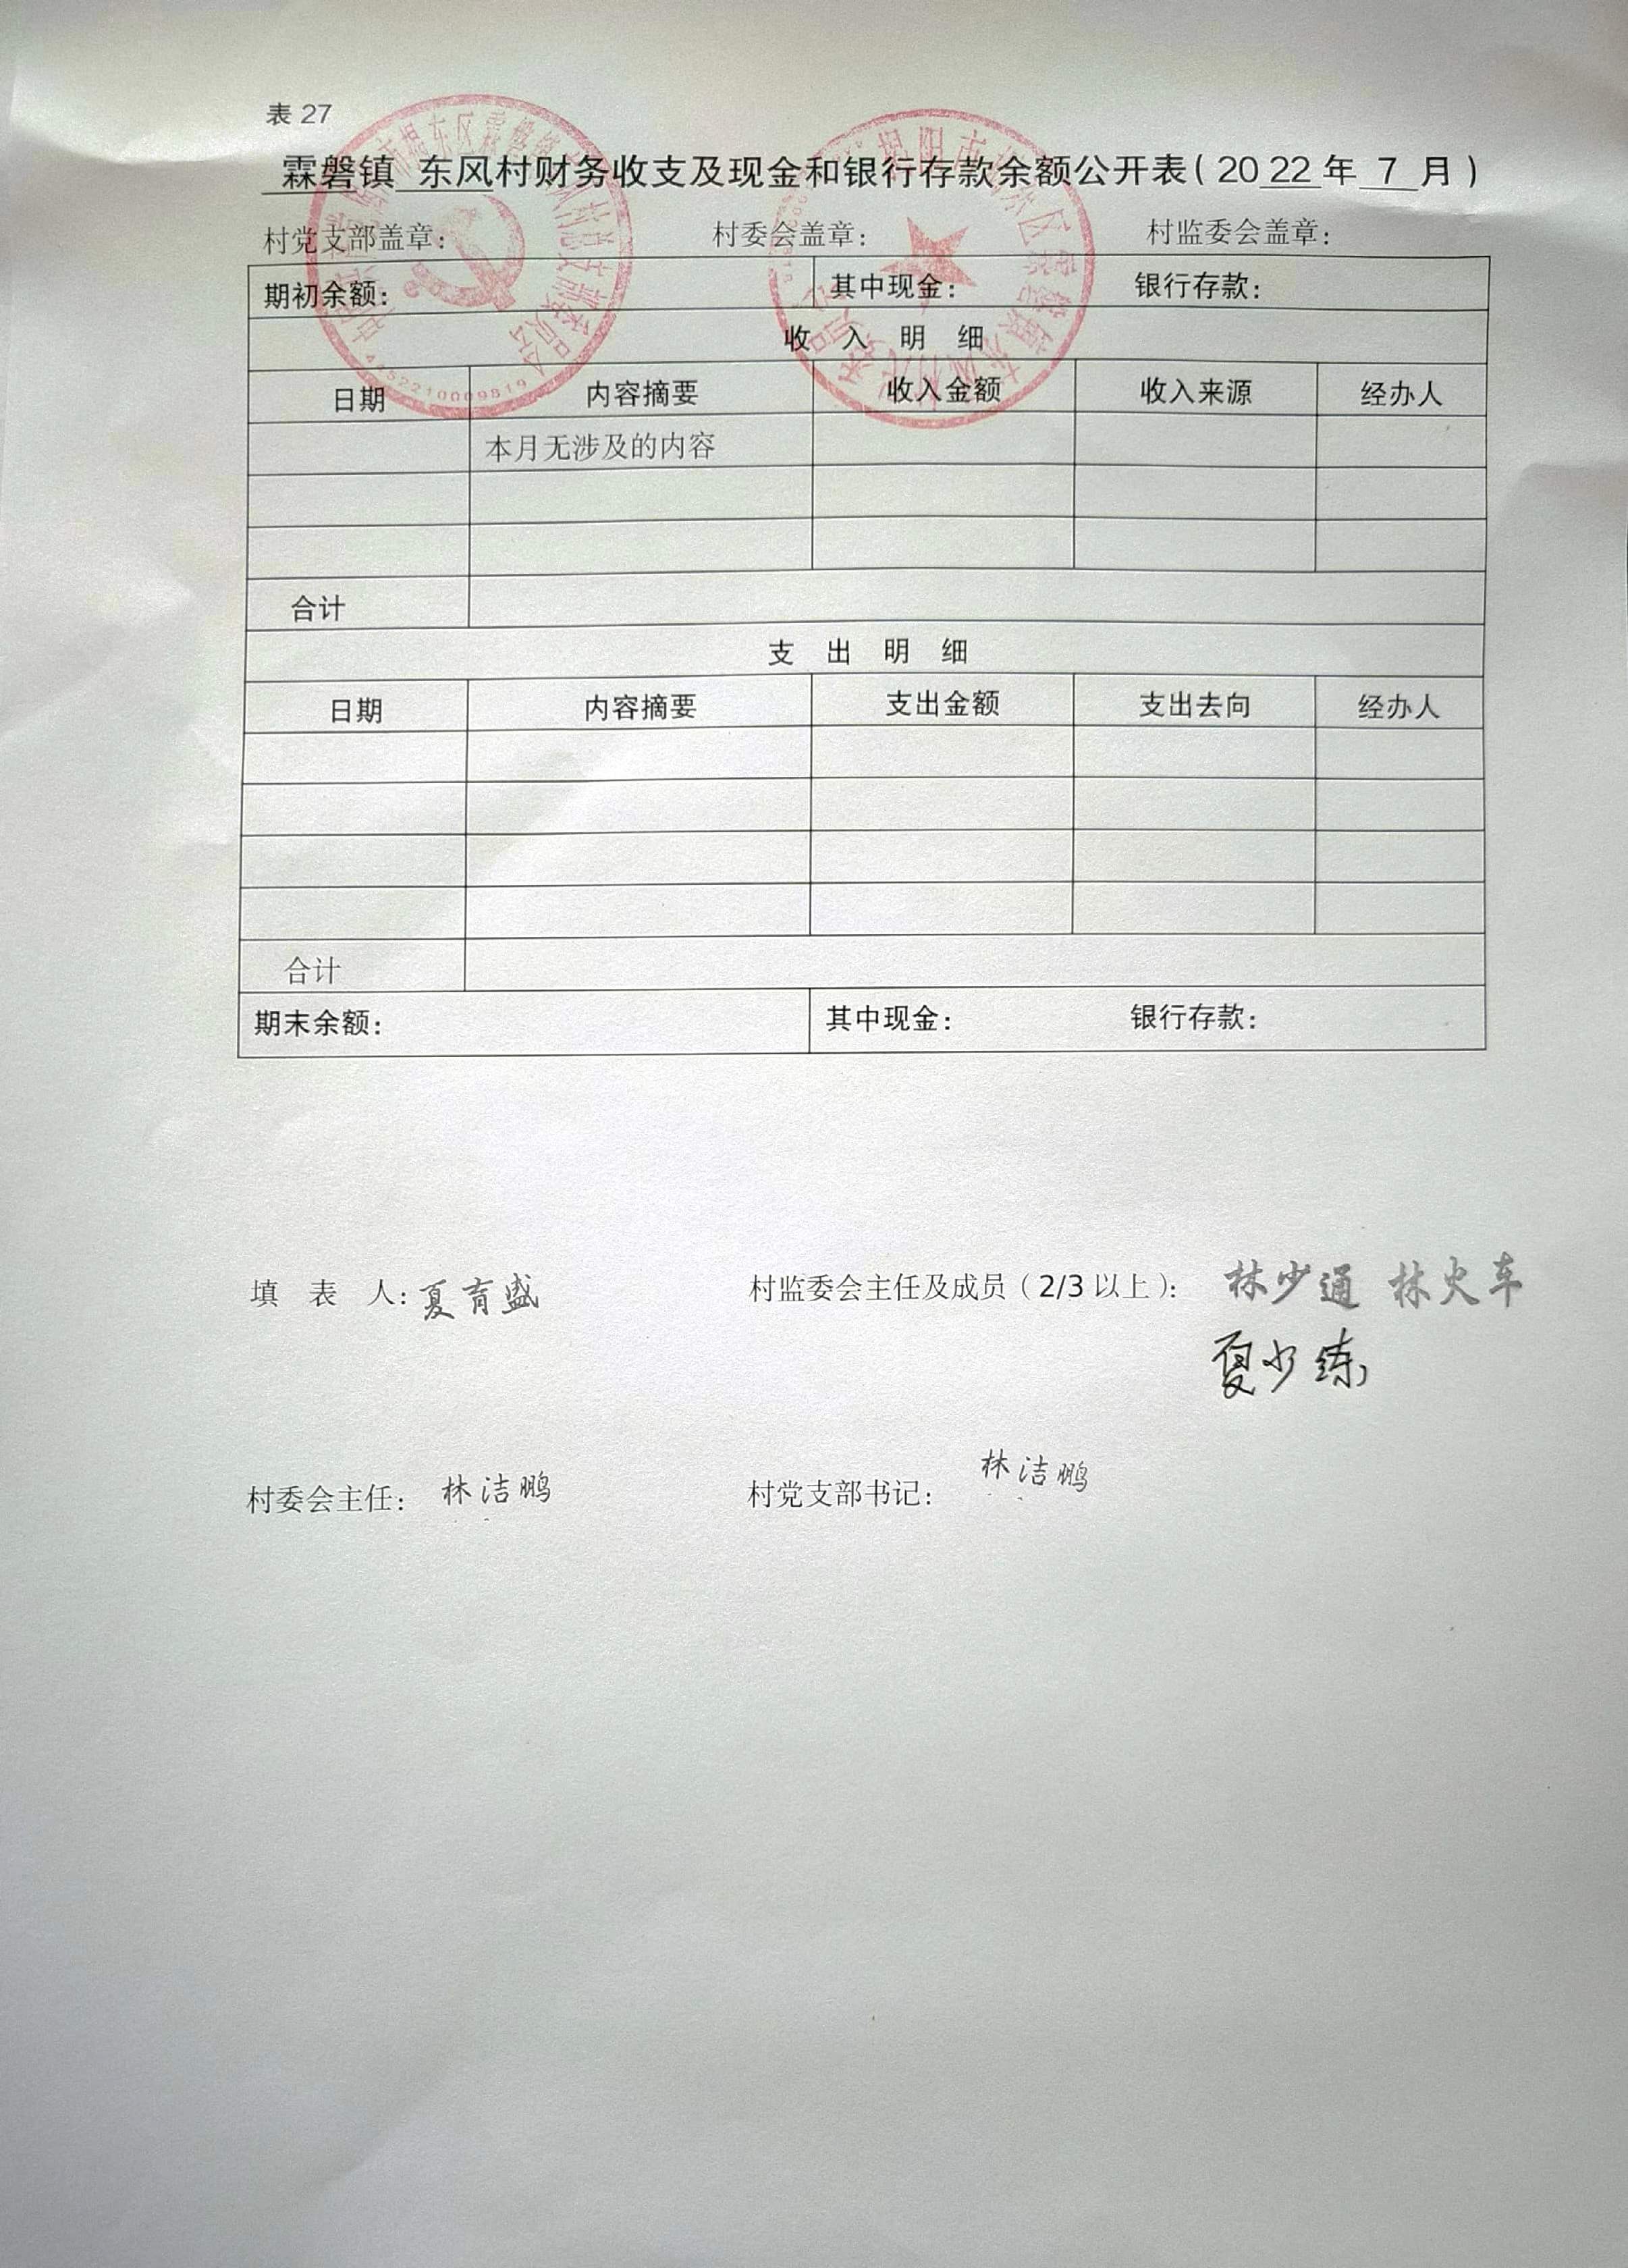 表 27
霖磐镇 东风村财务收支及现金和银行存款余额公开表（2022年 7 月）
村党支部盖章： 村委会盖章： 村监委会盖章：
期初余额： 其中现金： 银行存款：
收 入 明 细
日期 内容摘要 收入金额 收入来源 经办人
本月无涉及的内容
合计
支 出 明 细
日期 内容摘要 支出金额 支出去向 经办人
合计
期末余额： 其中现金： 银行存款：
填 表 人：夏育盛 村监委会主任及成员（2/3 以上）： 林少通 林火车
夏少练
村委会主任： 林洁鹏 村党支部书记： 林洁鹏